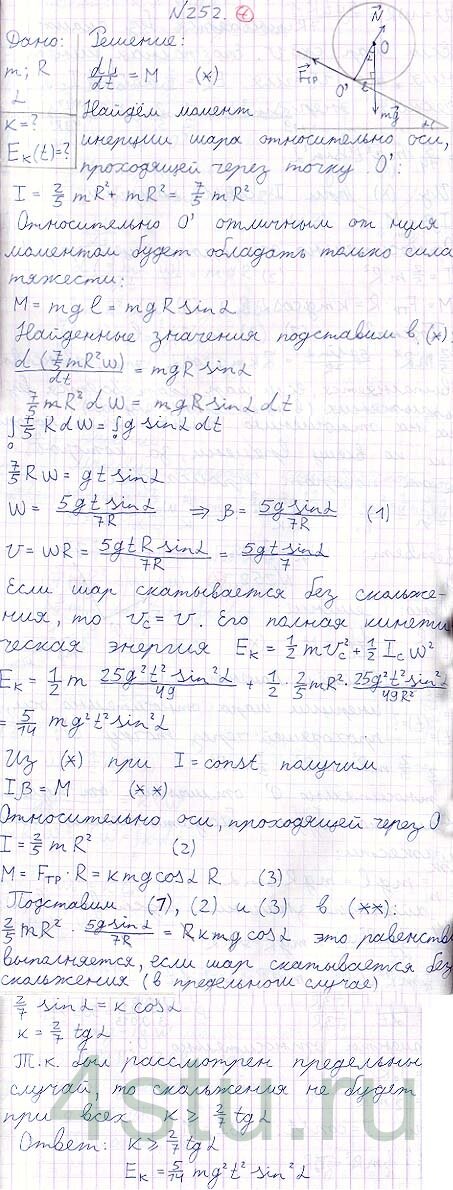 N252. 4
Дано: Решение:
m; R
α
k = ?
Eк(t) = ?
dL/dt = M (*)
Найдём момент
инерции шара относительно оси,
проходящей через точку O':
I = 2/5 mR² + mR² = 7/5 mR²
Относительно O' отличным от нуля
моментом будет обладать только сила
тяжести:
M = mgl = mgR sinα
Найденные значения подставим в (*):
d(7/5 mR²w)/dt = mgR sinα
7/5 mR²dw = mgR sinα dt
∫₀ 7/5 R dw = ∫₀ g sinα dt
7/5 Rw = gt sinα
w = 5gt sinα/7R ⇒ β = 5g sinα/7R (1)
v = wR = 5gtR sinα/7R = 5gt sinα/7
Если шар скатывается без скольже-
ния, то vc = v. Его полная кинети
ческая энергия Eк = 1/2 mvc² + 1/2 Ic w²
Eк = 1/2 m 25g²t² sin²α/49 + 1/2 · 2/5 mR² · 25g²t² sin²α/49R²
= 5/14 mg²t² sin²α
Из (*) при I = const получим
Iβ = M (**)
Относительно оси, проходящей через O
I = 2/5 mR² (2)
M = Fтр · R = kmg cosα R (3)
Подставим (1), (2) и (3) в (**):
2/5 mR² · 5g sinα/7R = Rkmg cosα это равенств
выполняется, если шар скатывается без
скольжения (в предельном случае)
2/7 sinα = k cosα
k = 2/7 tgα
Т.к. был рассмотрен предельны
случай, то скольжения не будет
при всех k ≥ 2/7 tgα
Ответ: k ≥ 2/7 tgα
Eк = 5/14 mg²t² sin²α
N
O
α
Fтр
O'
l
mg
4stu.ru